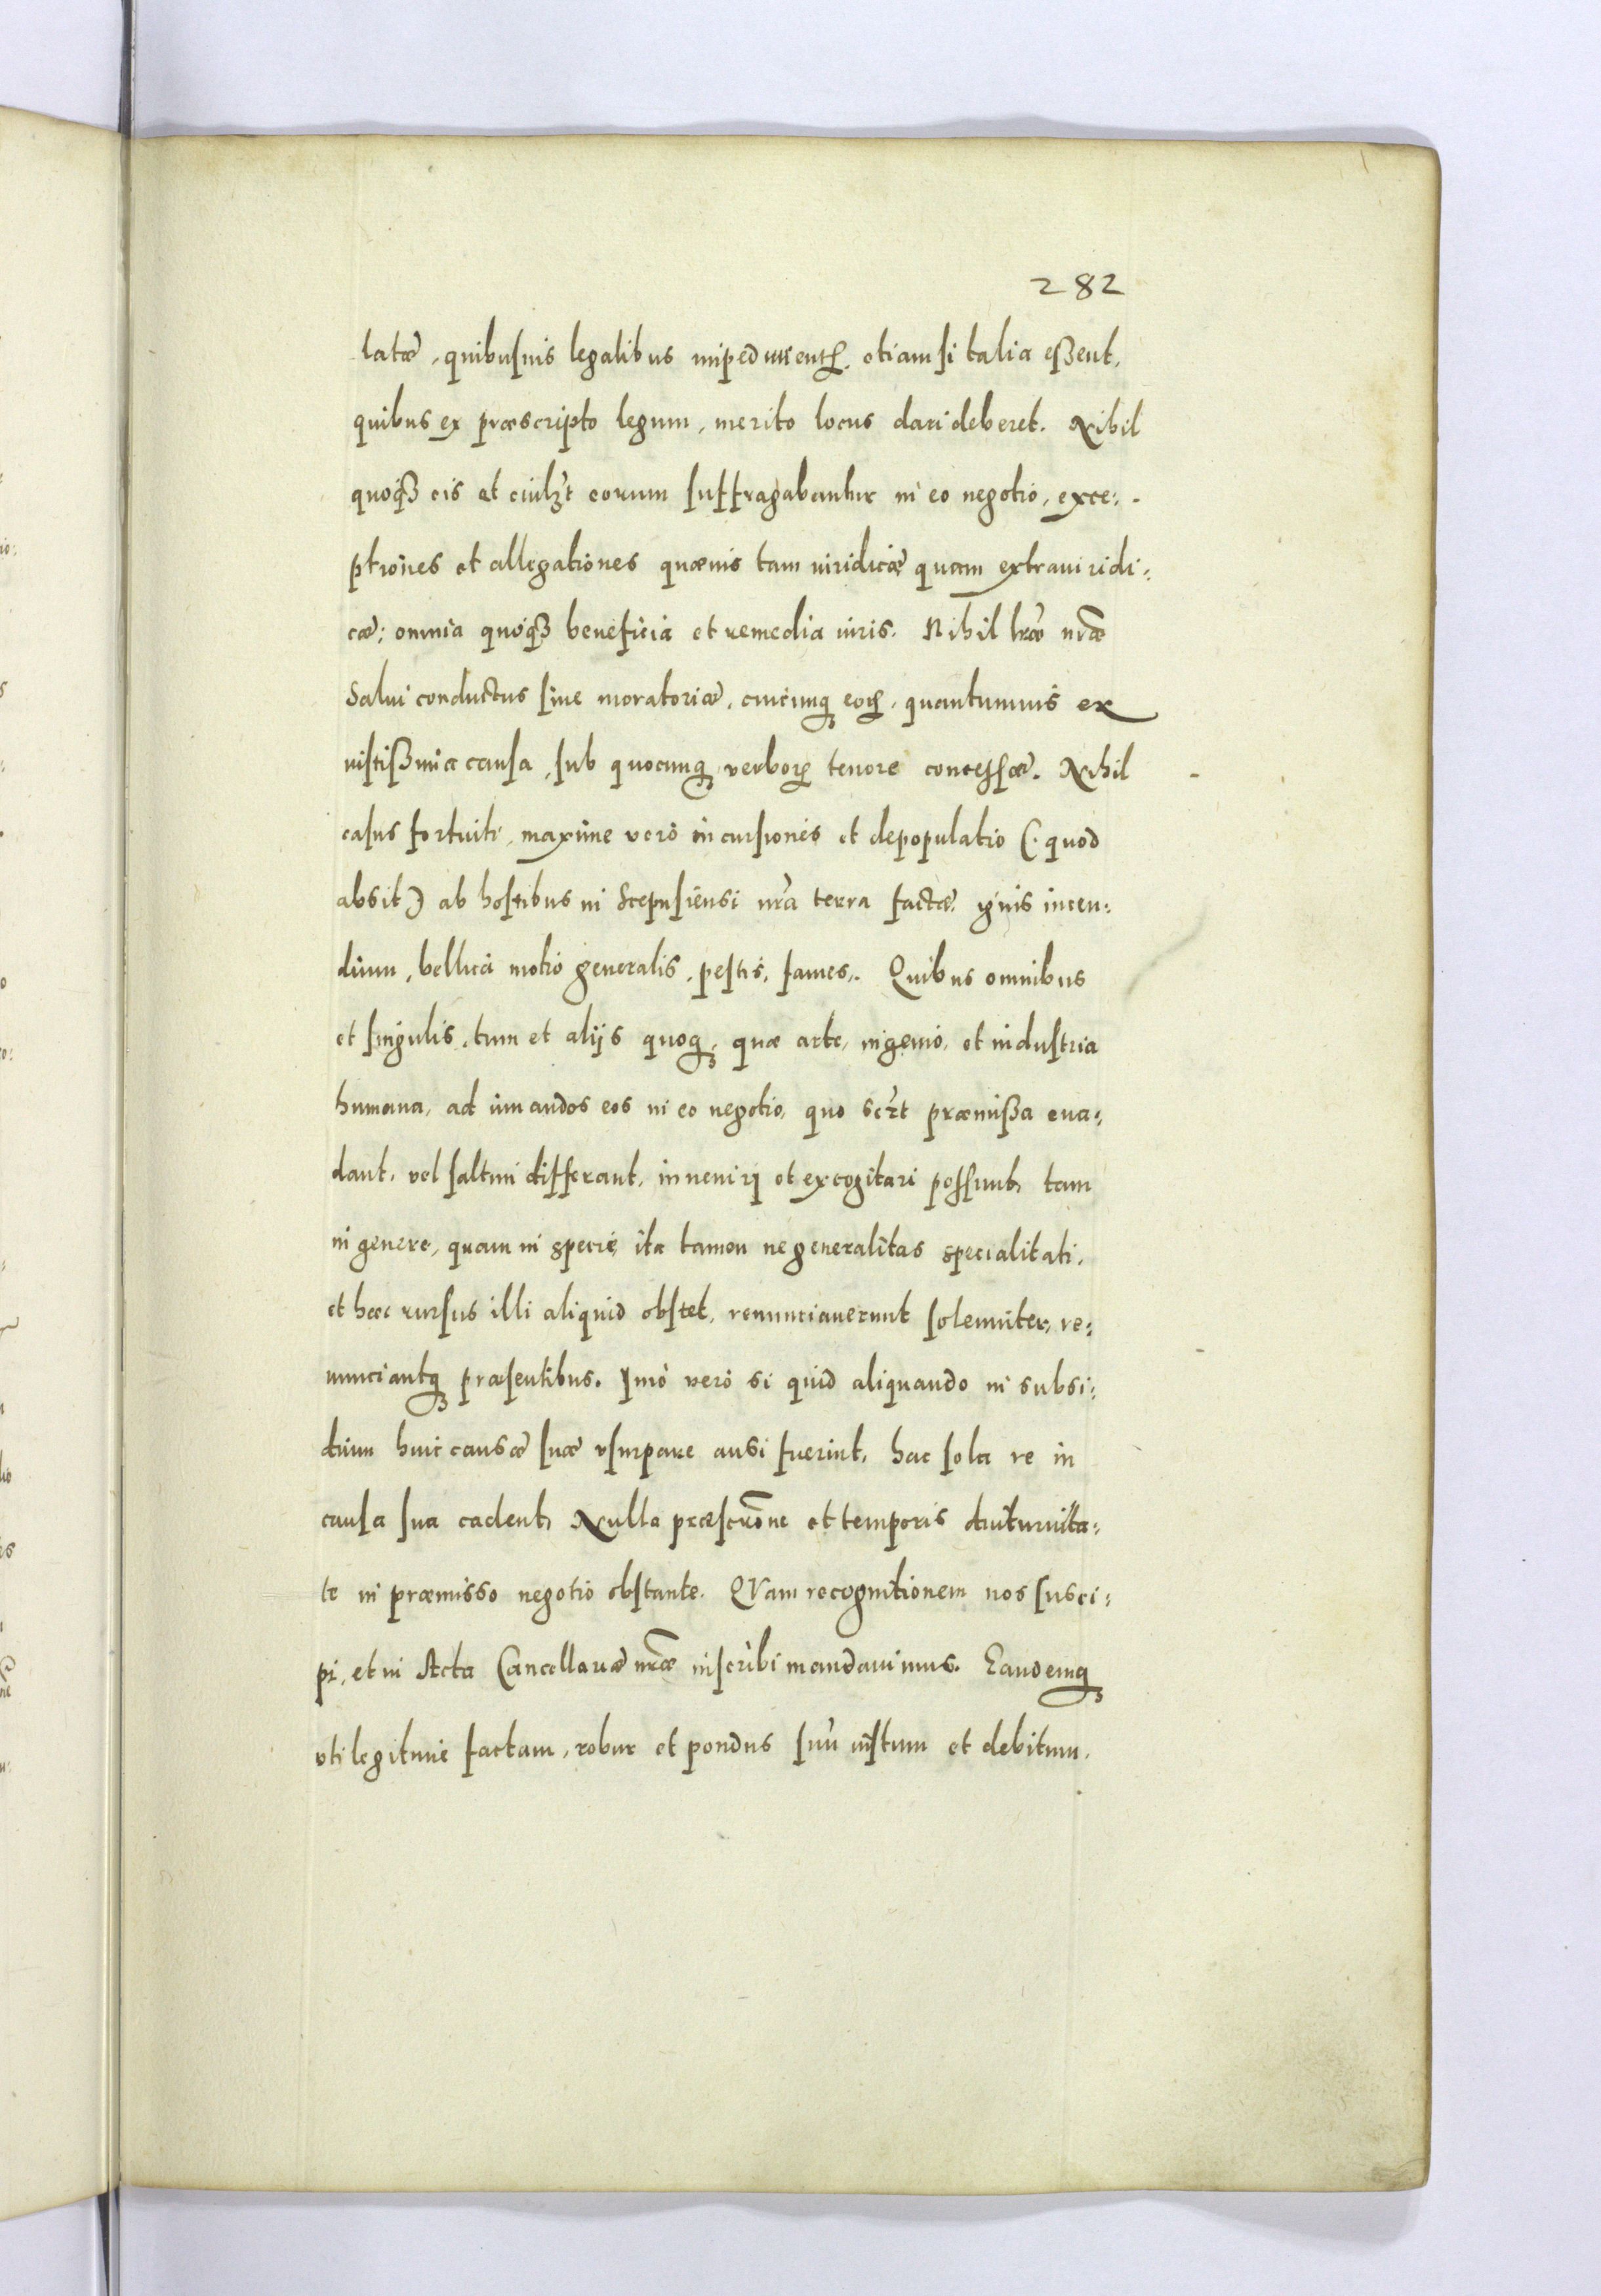 282
latæ, quibusuis legalibus impedimentꝝ, etiamsi talia eßent,
quibus ex præscripto legum, merito locus dari deberet. Nihil
quoqꝫ eis et cuilꝫt eorum suffragabantur in eo negotio, exce:
ptiones et allegationes quæuis tam iuridicæ quam extraiuridi:
cæ; omnia quoqꝫ beneficia et remedia iuris. Nihil lræ nræ
Salui conductus siue moratoriæ, cuicunqꝫ eoꝝ, quantumuis ex
iustißima causa, sub quocunqꝫ verboꝝ tenore concessæ. Nihil
casus fortuiti, maxime verò incursiones et depopulatio (quod
absit) ab hostibus in Scepusiensi nrà terra factæ, ignis incen:
dium, bellica motio generalis, pestis, fames. Quibus omnibus
et singulis, tum et alijs quoqꝫ, quæ arte, ingenio, et industria
humana, ad iuuandos eos in eo negotio, quo scꝫt præmißa eua:
dant, vel saltim differant, inueniri et excogitari possunt, tam
in genere, quam in specie, ita tamen ne generalitas specialitati,
et hæc rursus illi aliquid obstet, renunciauerunt solenniter, re:
nunciantqꝫ præsentibus. Imò verò si quid aliquando in subsi:
dium huic causæ suæ vsurpare ausi fuerint, hac sola re in
causa sua cadent, Nulla præscrõne et temporis diuturnita:
te in præmisso negotio obstante. QVam recognitionem nos susci:
pi, et in Acta Cancellariæ nræ inscribi mandauimus. Eandemqꝫ
vti legitime factam, robur et pondus suũ iustum et debitum.